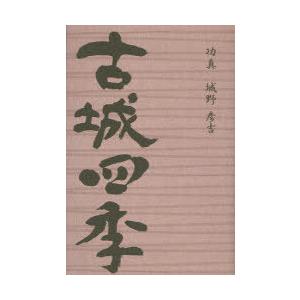 功真 城野 彦吉
古城四季